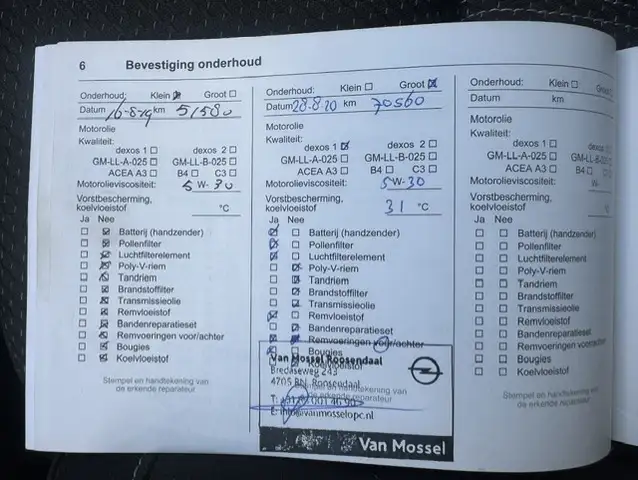 6 Bevestiging onderhoud
Onderhoud: Klein Groot
Datum 16-8-19 km 51580
Motorolie
Kwaliteit:
dexos 1 dexos 2
GM-LL-A-025 GM-LL-B-025
ACEA A3 B4 C3
Motorolieviscositeit: 5 W-30
Vorstbescherming,
koelvloeistof °C
Ja Nee
Batterij (handzender)
Pollenfilter
Luchtfilterelement
Poly-V-riem
Tandriem
Brandstoffilter
Transmissieolie
Remvloeistof
Bandenreparatieset
Remvoeringen voor/achter
Bougies
Koelvloeistof
Stempel en handtekening van
de erkende reparateur
Onderhoud: Klein Groot
Datum 28-8-20 km 70560
Motorolie
Kwaliteit:
dexos 1 dexos 2
GM-LL-A-025 GM-LL-B-025
ACEA A3 B4 C3
Motorolieviscositeit: 5W-30
Vorstbescherming,
koelvloeistof 31 °C
Ja Nee
Batterij (handzender)
Pollenfilter
Luchtfilterelement
Poly-V-riem
Tandriem
Brandstoffilter
Transmissieolie
Remvloeistof
Bandenreparatieset
Remvoeringen voor/achter
Bougies
Koelvloeistof
Van Mossel Roosendaal
Bredaseweg 243
4705 RN Roosendaal
handtekening van
de erkende reparateur
E: info@vanmosselopc.nl
Van Mossel
Onderhoud: Klein Groot
Datum km
Motorolie
Kwaliteit:
dexos 1 dexos 2
GM-LL-A-025 GM-LL-B-025
ACEA A3 B4
Motorolieviscositeit: W-
Vorstbescherming,
koelvloeistof °C
Ja Nee
Batterij (handzender)
Pollenfilter
Luchtfilterelement
Poly-V-riem
Tandriem
Brandstoffilter
Transmissieolie
Remvloeistof
Bandenreparatieset
Remvoeringen
Bougies
Koelvloeistof
Stempel en handtekening van
de erkende reparateur